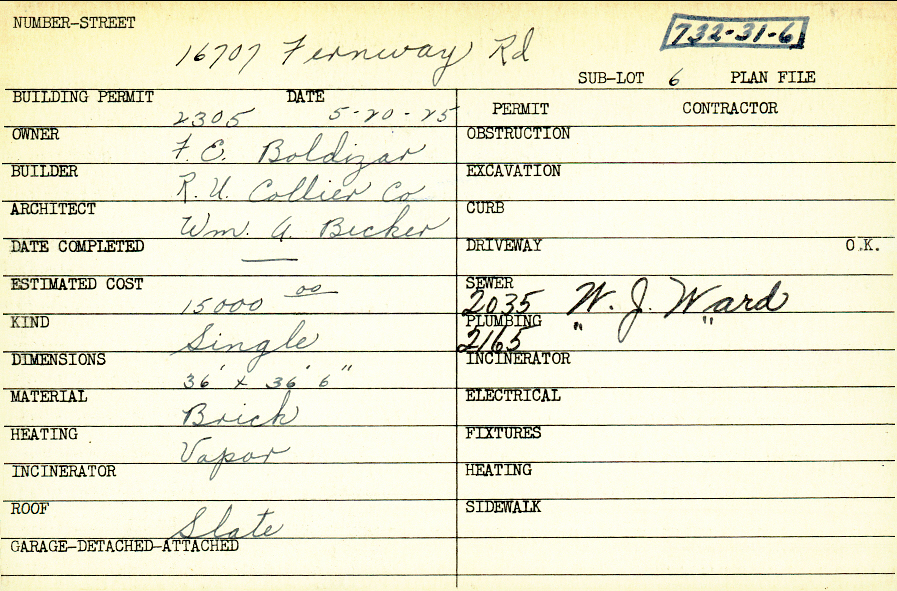 NUMBER-STREET
16707 Fernway Rd
732-31-6
SUB-LOT 6 PLAN FILE
BUILDING PERMIT 2305 DATE 5-20-25
PERMIT CONTRACTOR
OWNER F. E. Boldizar
OBSTRUCTION
BUILDER R. U. Collier Co
EXCAVATION
ARCHITECT Wm. A. Becker
CURB
DATE COMPLETED —
DRIVEWAY O.K.
ESTIMATED COST 15000 00
SEWER 2035 W. J. Ward
KIND Single
PLUMBING 2165 " "
DIMENSIONS 36' x 36' 6"
INCINERATOR
MATERIAL Brick
ELECTRICAL
HEATING Vapor
FIXTURES
INCINERATOR
HEATING
ROOF Slate
SIDEWALK
GARAGE-DETACHED-ATTACHED